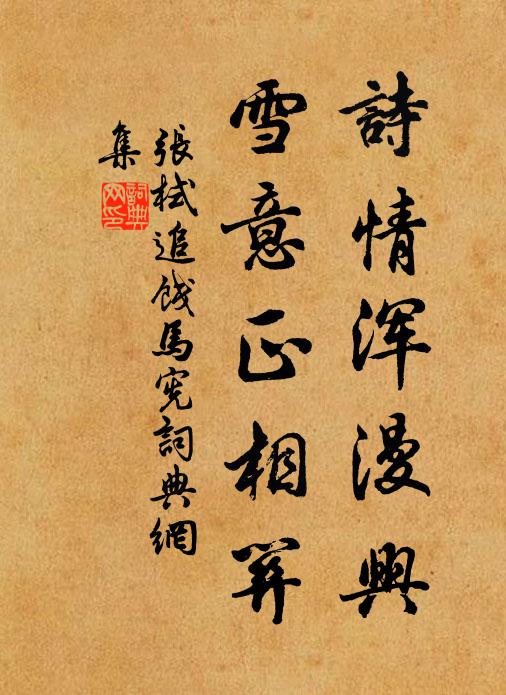 詩情渾漫興
雪意正相
張栻追餞馬宪詞典網
集
詞典网印